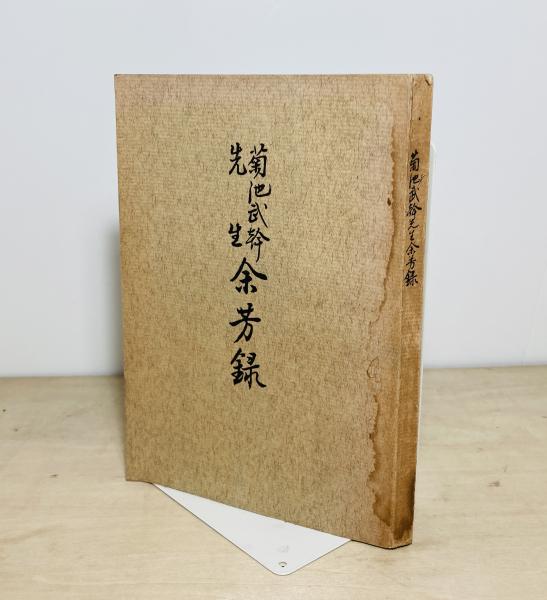 菊池武幹
先生
余芳録
菊池武幹先生余芳録